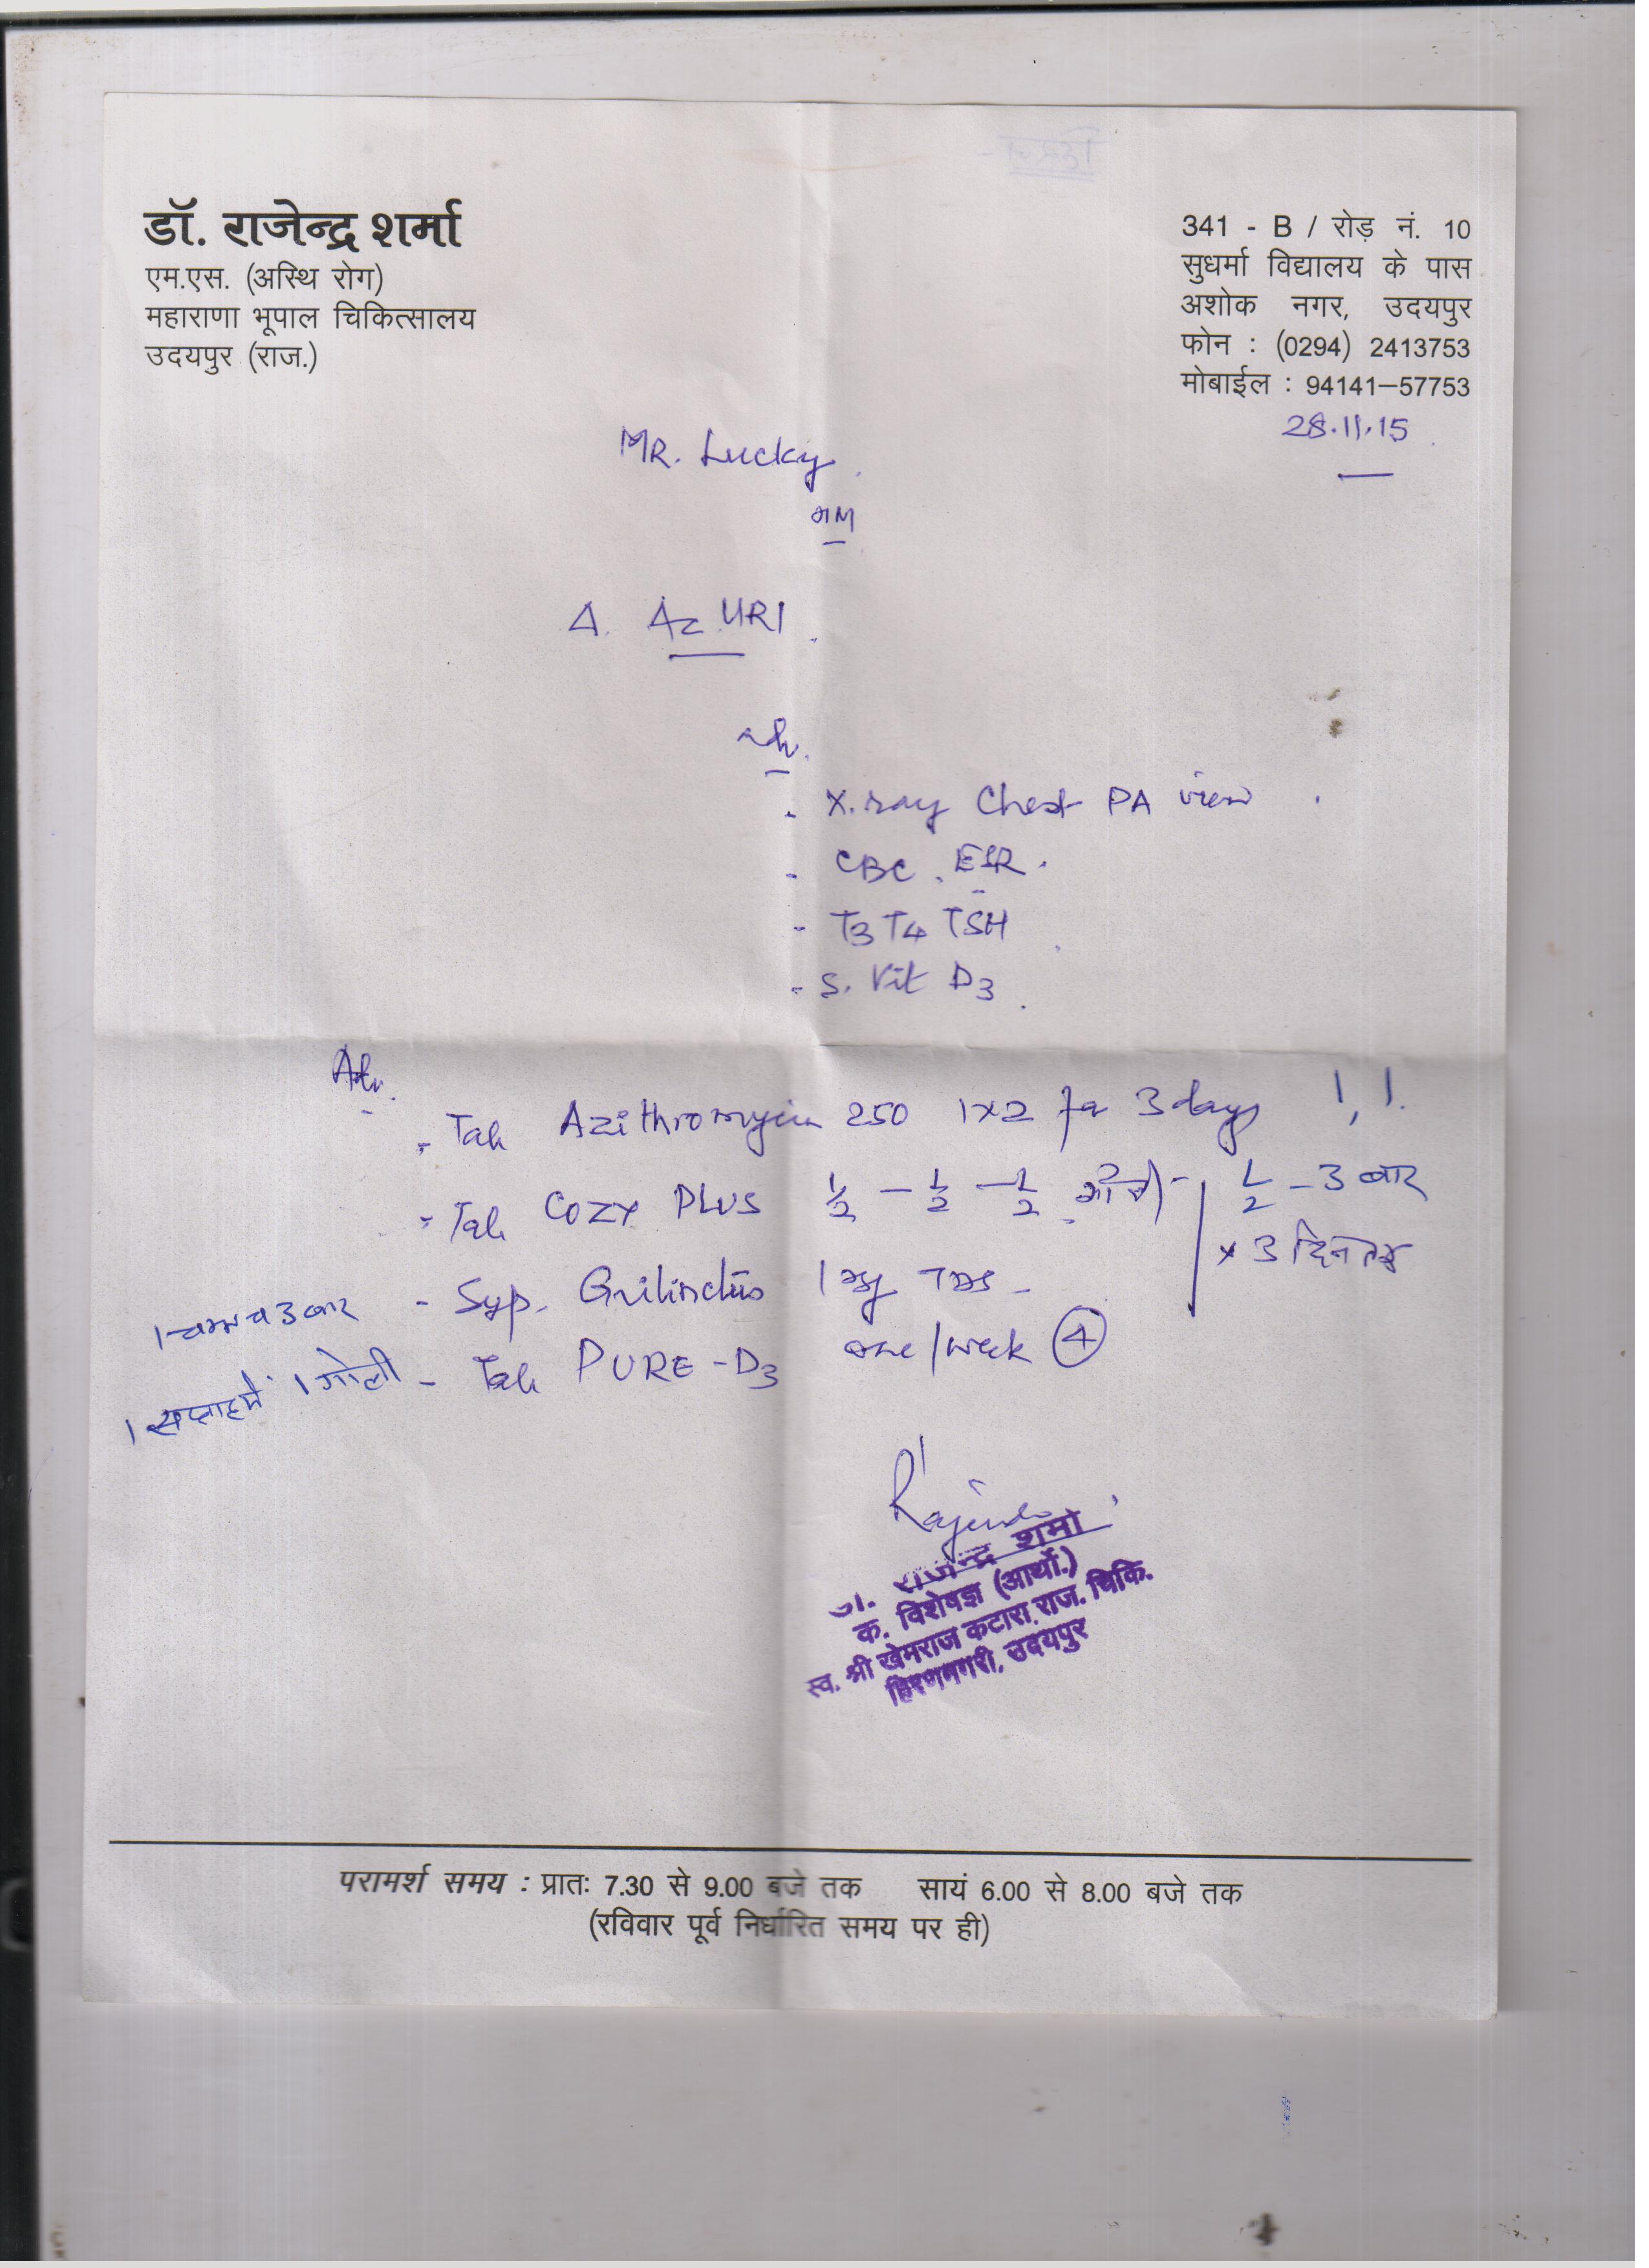 डॉ. राजेन्द्र शर्मा
एम.एस. (अस्थि रोग)
महाराणा भूपाल चिकित्सालय
उदयपुर (राज.)
341 - B / रोड़ नं. 10
सुधर्मा विद्यालय के पास
अशोक नगर, उदयपुर
फोन : (0294) 2413753
मोबाईल : 94141–57753
28.11.15
MR. Lucky
Δ. Ac URI
adv.
- X.ray Chest PA view
- CBC. ESR.
- T3 T4 TSH
- S. Vit D3
Adv.
- Tab Azithromycin 250 1x2 for 3 days 1, 1.
- Tab COZY PLUS 1/2 - 1/2 - 1/2 1/2 - 3 बार
x 3 दिन तक
1 चम्मच 3 बार - Syp. Grilinctus 1 TDS
1 सप्ताह में 1 गोली - Tab PURE-D3 one/week 4
Rajendra
डॉ. राजेन्द्र शर्मा
क. विशेषज्ञ (आर्थो.)
स्व. श्री खेमराज कटारा राज. चिकि.
हिरणमगरी, उदयपुर
परामर्श समय : प्रातः 7.30 से 9.00 बजे तक सायं 6.00 से 8.00 बजे तक
(रविवार पूर्व निर्धारित समय पर ही)